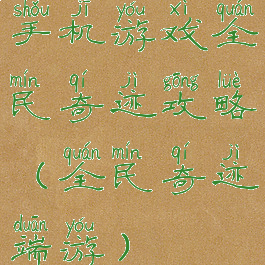 shǒu jī yóu xì quán
手机游戏全
mín qí jì gōng lüè
民奇迹攻略
quán mín qí jì
（全民奇迹
duān yóu
端游）